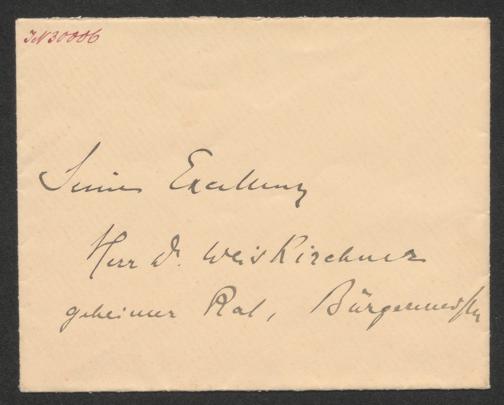 IN 30006
Seiner Excellenz
Herr D. Weiskirchner
geheimer Rat, Bürgermeister